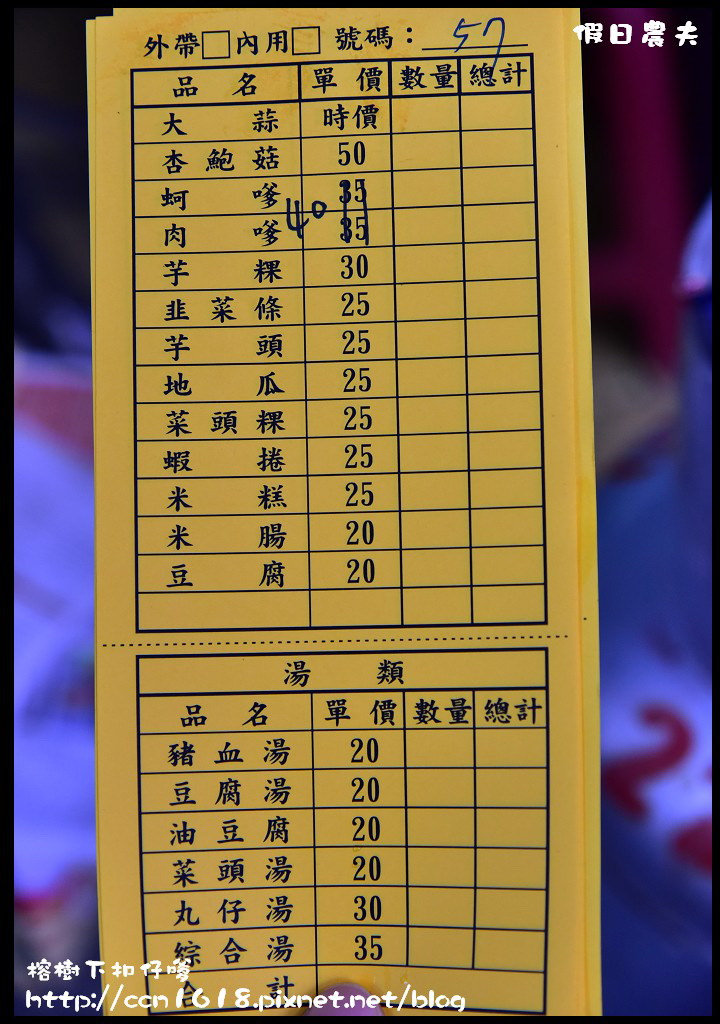 假日農夫
外帶□內用□ 號碼：57
品名 單價 數量 總計
大蒜 時價
杏鮑菇 50
蚵嗲 35
40
肉嗲 35
芋粿 30
韭菜條 25
芋頭 25
地瓜 25
菜頭粿 25
蝦捲 25
米糕 25
米腸 20
豆腐 20
湯類
品名 單價 數量 總計
豬血湯 20
豆腐湯 20
油豆腐 20
菜頭湯 20
丸仔湯 30
綜合湯 35
合計
榕樹下扣仔嗲
http://ccn1618.pixnet.net/blog